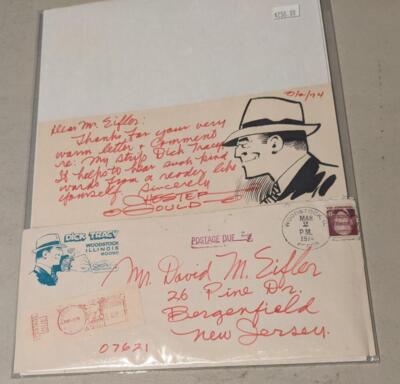 $250.00
Dear Mr. Eifler:
Thanks for your very
warm letter & comment
re: my strip Dick Tracy.
It helps to hear such kind
words from a reader like
yourself. Sincerely
CHESTER
GOULD
DICK TRACY
WOODSTOCK
ILLINOIS
60098
POSTAGE DUE
WOODSTOCK, IL
MAR
2
P.M.
1974
Mr. David M. Eifler
26 Pine Dr.
Bergenfield
New Jersey.
07621